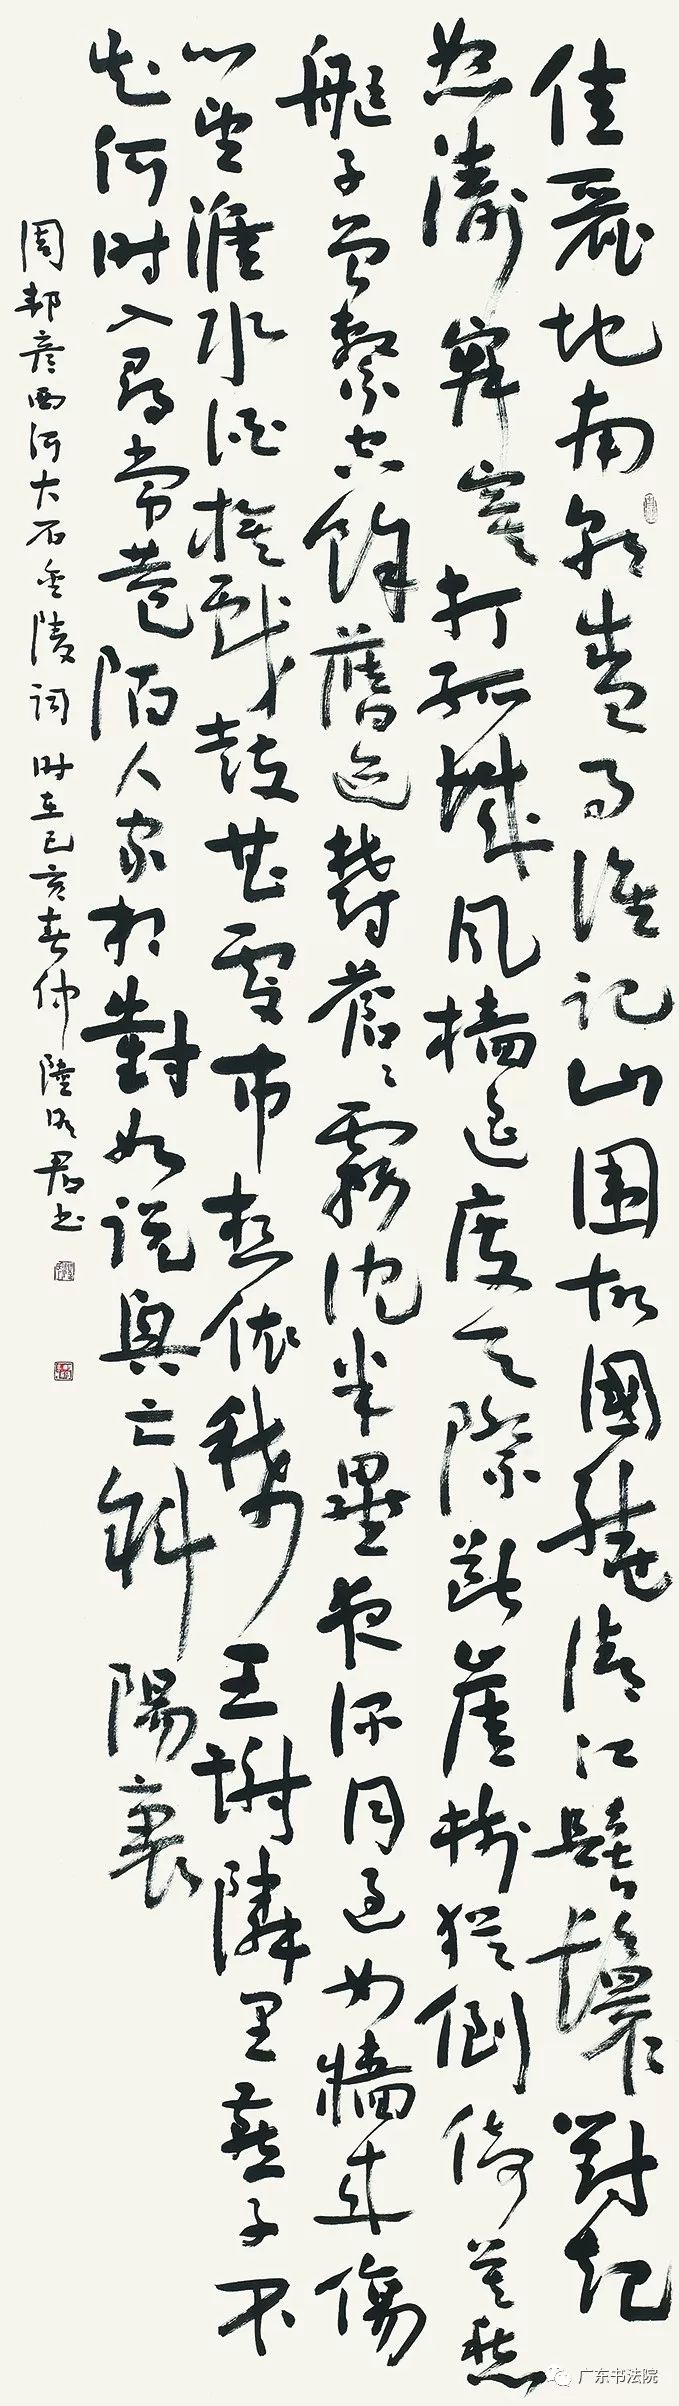 佳麗地南朝盛事誰記山围故國繞清江髻鬟對起
怒濤寂寞打孤城風檣遥度天際斷崖樹猶倒倚莫愁
艇子曾繫空餘舊迹鬱蒼〻霧沈半壘夜深月過女牆來傷
心望淮水酒旗戲鼓甚處市想依稀王謝隣里燕子不
知何时入尋常巷陌人家相對如説興亡斜陽裏
周邦彦西河大石金陵词时在己亥春仲陸明君书
广东书法院